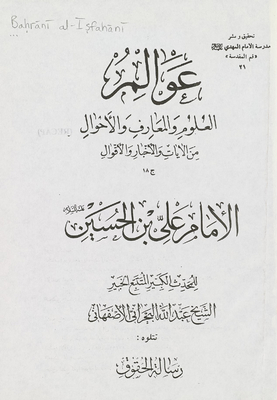 Baḥrānī al-Iṣfahānī
تحقيق و نشر
مدرسة الإمام المهدي
« قم المقدسة »
٢١
عوالم
العلوم والمعارف والأحوال
من الآيات والأخبار والأقوال
ج ١٨
الإمام علي بن الحسين
للمحدث الكبير المتتبع الخبير
الشيخ عبد الله البحراني الأصفهاني
تتلوه :
رسالة الحقوق